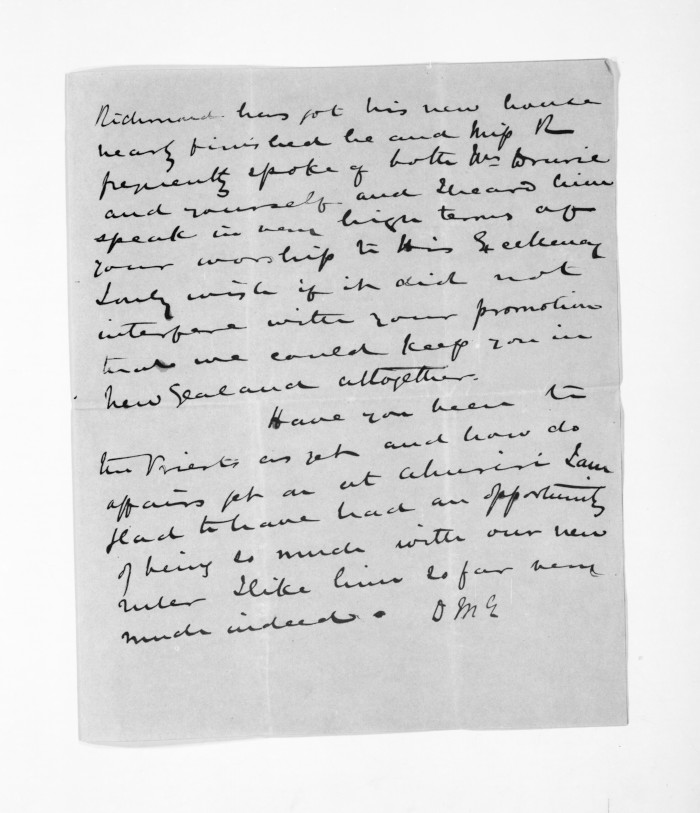 Richmond has got his new house
nearly finished he and Miss R
frequently spoke of both Mrs Drurie
and yourself and I heard him
speak in very high terms of
your worship to His Excellency
I only wish if it did not
interfere with your promotion
that we could keep you in
New Zealand altogether.
Have you been to
the Priests as yet and how do
affairs get on at Ahuriri I am
glad to have had an opportunity
of being so much with our new
ruler I like him so far very
much indeed. D McL